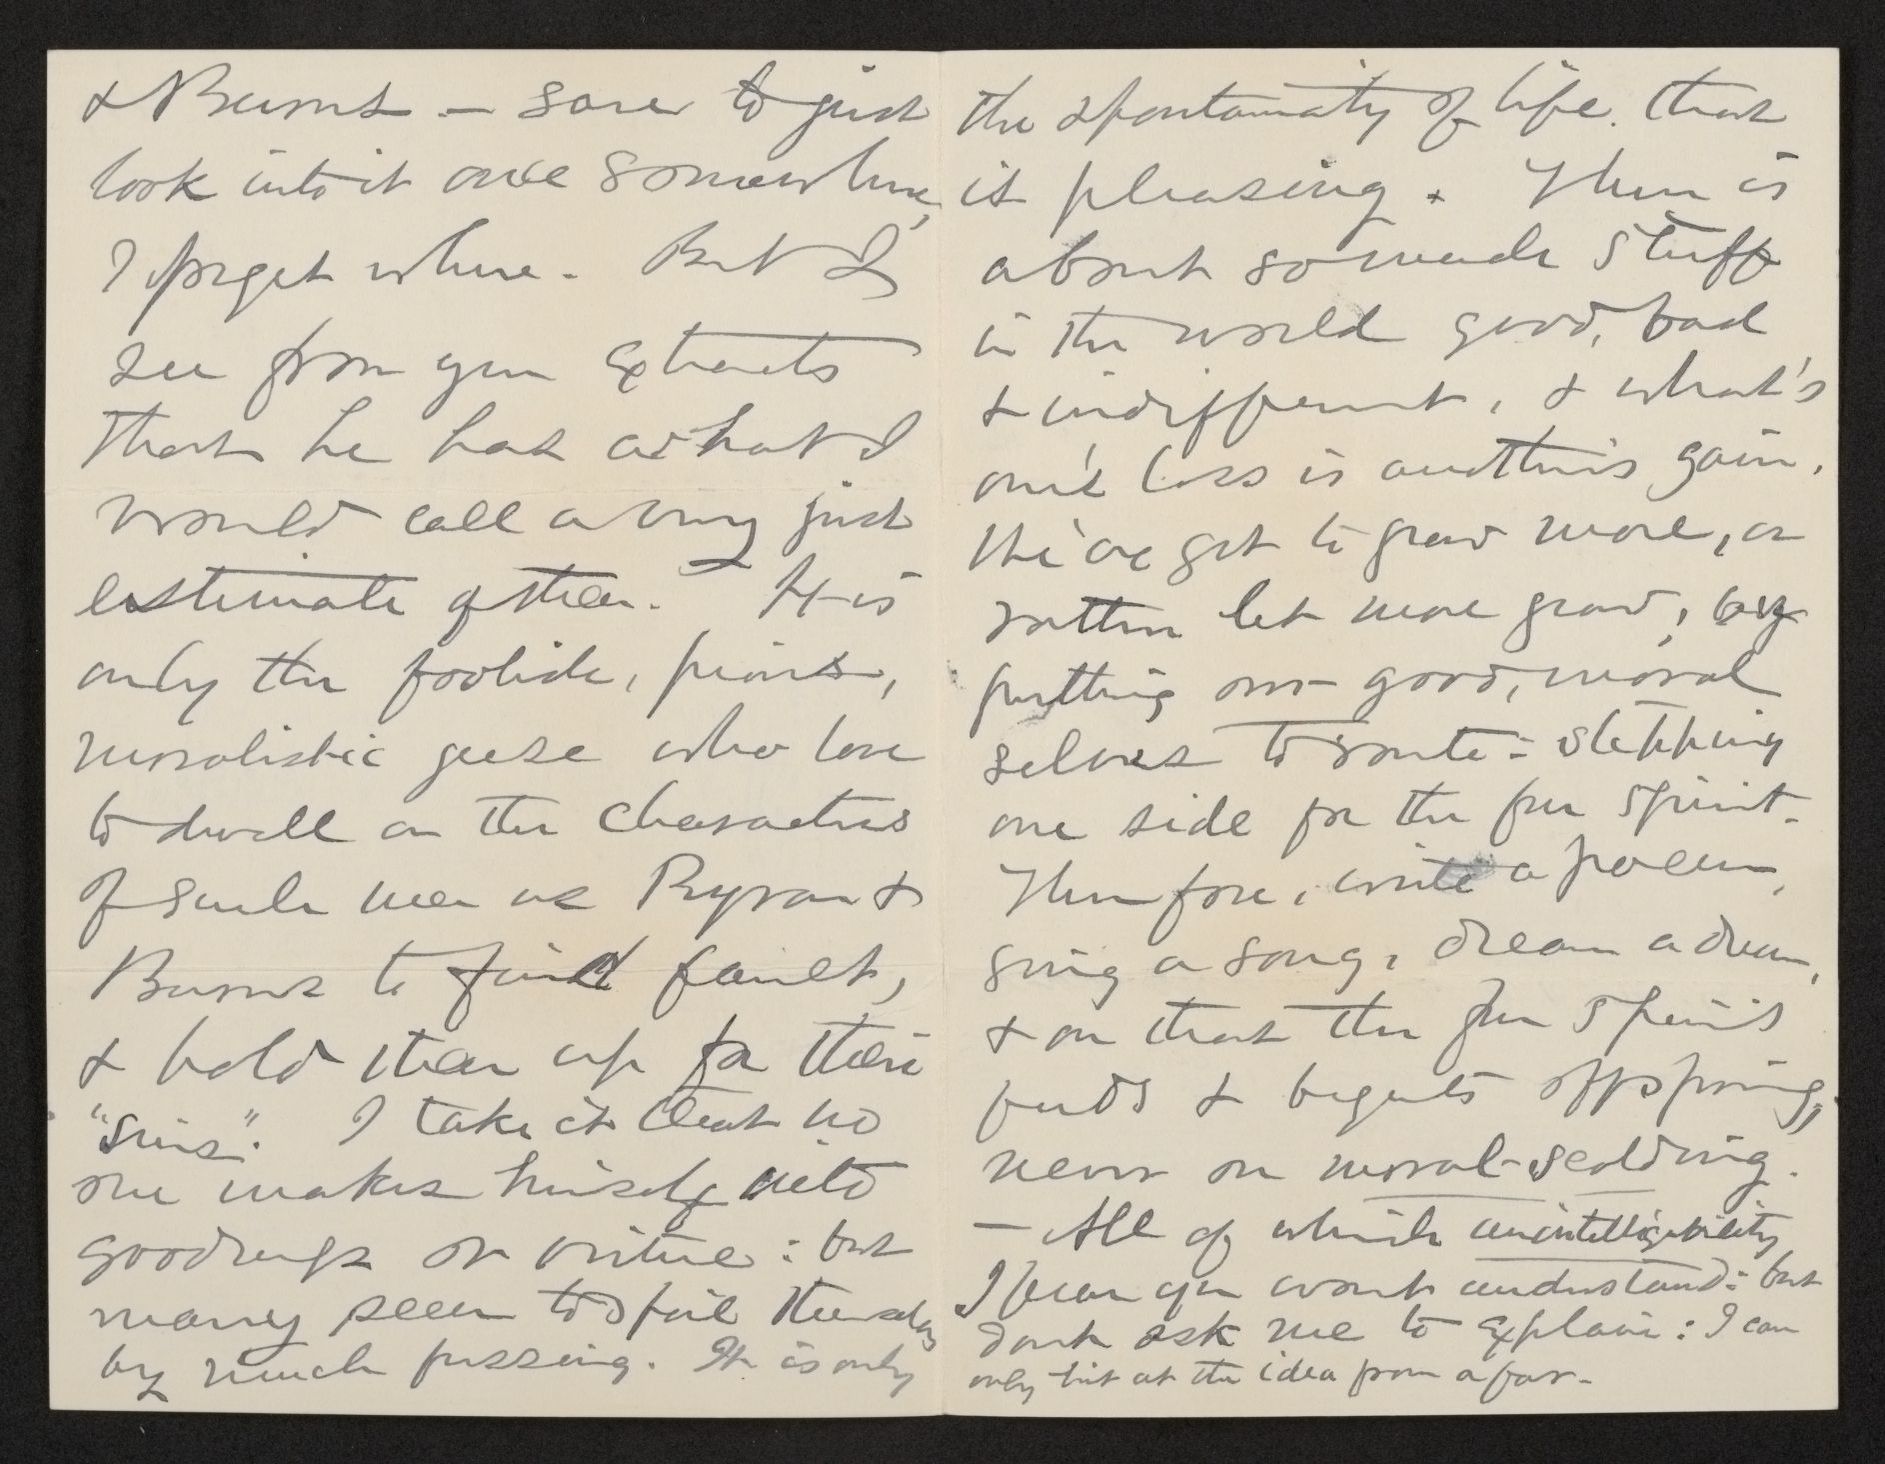 & Burns — save to just
look into it once somewhere,
I forget where. But I
see from your extracts
that he has what I
would call a very just
estimate of them. It is
only the foolish, pious,
moralistic geese who love
to dwell on the characters
of such men as Byron &
Burns to find fault,
& hold them up for their
"sins". I take it that no
one makes himself into
goodness or virtue: but
many seem to spoil themselves
by much fussing. It is only
the spontaneity of life that
is pleasing. There is
about so much stuff
in the world good, bad
& indifferent, & what's
one's loss is another's gain.
We've got to grow more, or
rather let more grow, by
putting our good, moral
selves to route: stepping
one side for the free spirit.
Therefore, write a poem,
sing a song, dream a dream,
& on that the free spirit
feeds & begets offspring,
never on moral-scolding.
— All of which unintelligibility
I fear you wont understand: but
dont ask me to explain: I can
only hit at the idea from afar.